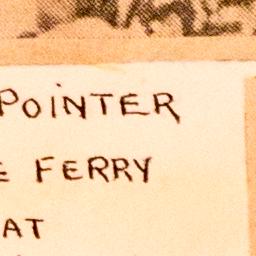 POINTER
E FERRY
AT